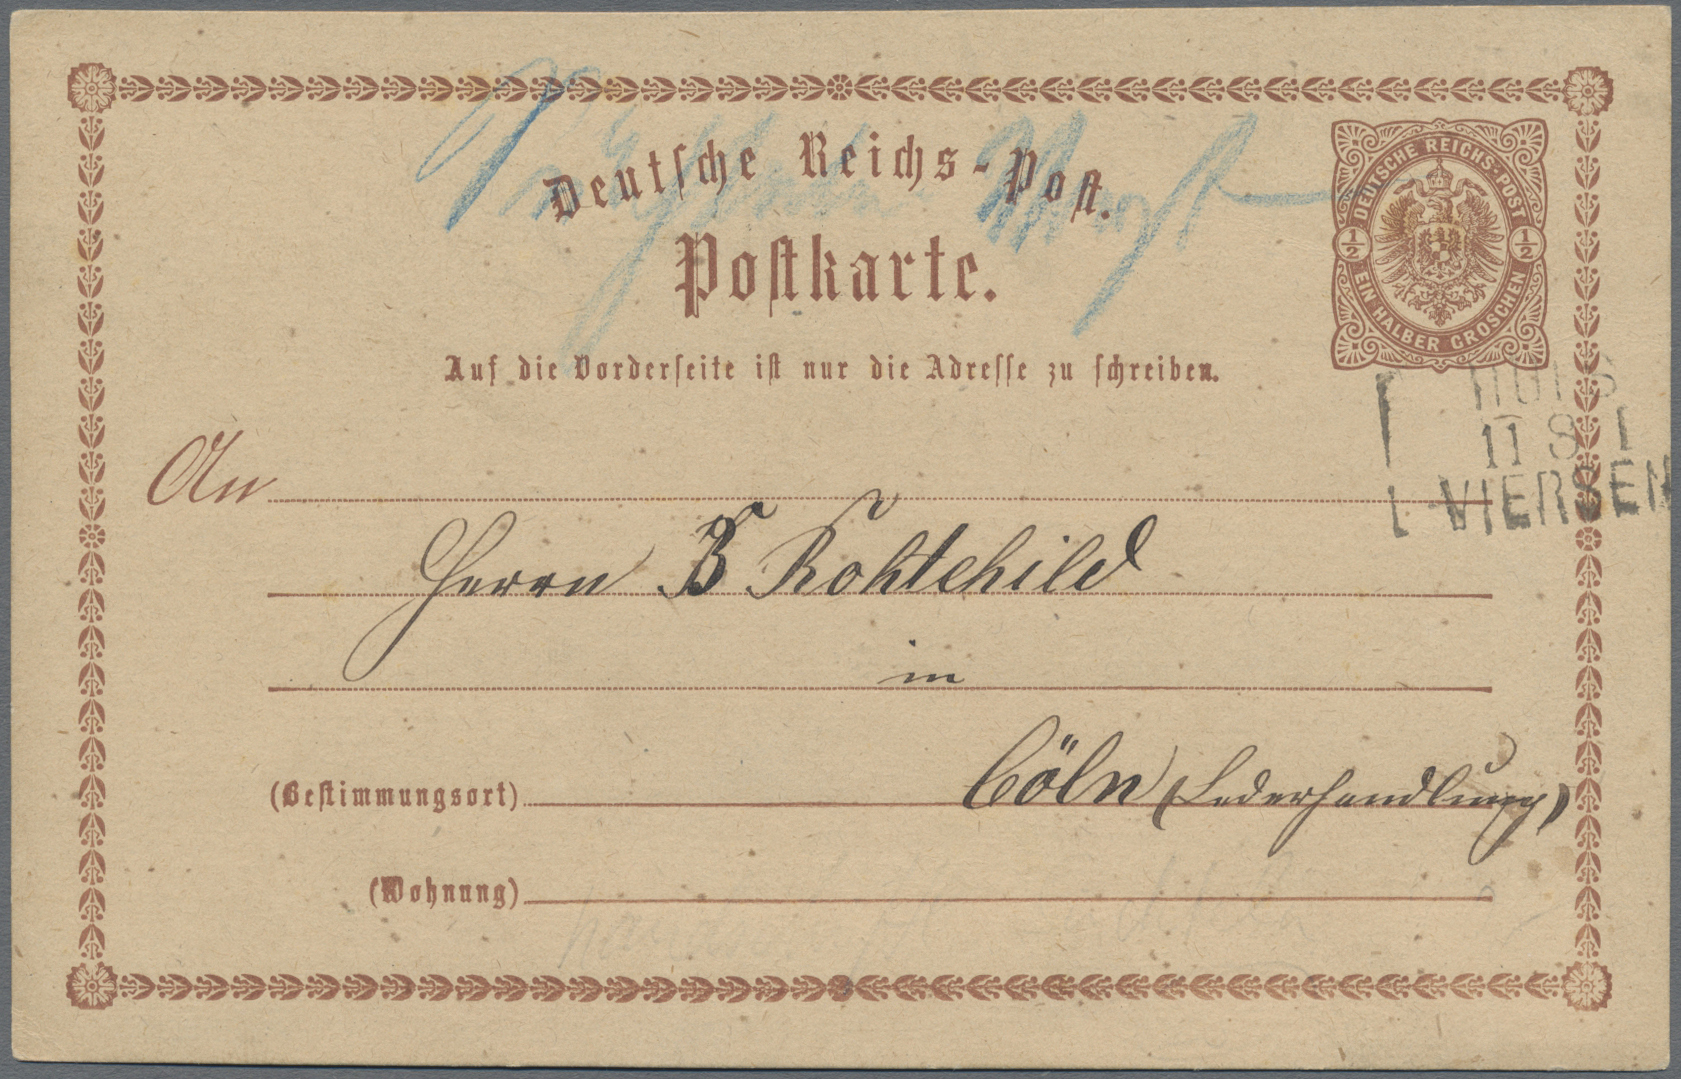 Deutsche Reichs-Post.
Postkarte.
DEUTSCHE REICHS-POST
1/2 1/2
EIN HALBER GROSCHEN
Auf die Vorderseite ist nur die Adresse zu schreiben.
11 8 I
VIERSEN
An
Herrn B Rohtchild
in
(Bestimmungsort) Cöln (Lederhandlung)
(Wohnung)